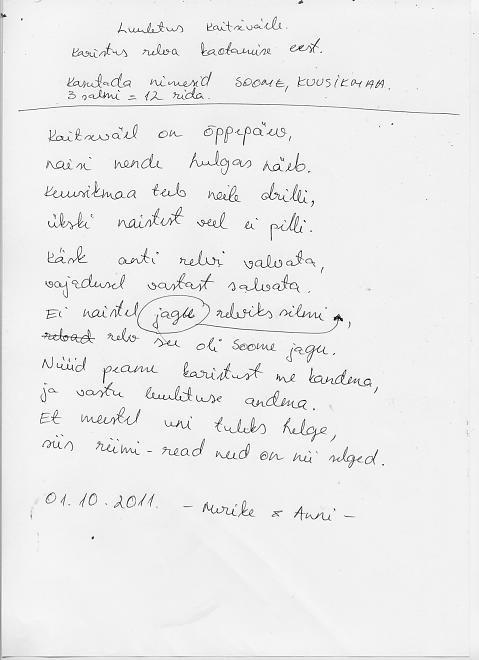 Luuletus Kaitseväele.
Karistus relva kaotamise eest.
Kasutada nimesid SOOME, KUUSIKMAA.
3 salmi = 12 rida.
Kaitseväel on õppepäev,
naisi nende hulgas näeb.
Kuusikmaa teeb neile drilli,
ükski naistest veel ei pilli.
Käsk anti relvi valvata,
vajadusel vastast salvata.
Ei naistel jagu relviks silmi,
relv see oli Soome jagu.
Nüüd peame karistust me kandma,
ja vastu luuletuse andma.
Et meestel uni tuleks helge,
siis riimi-read need on nii selged.
01.10.2011. - Merike & Anni -